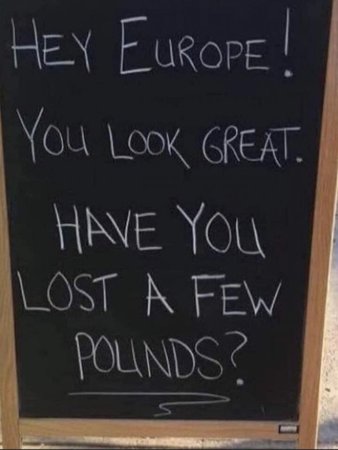 HEY EUROPE!
YOU LOOK GREAT.
HAVE YOU
LOST A FEW
POUNDS?